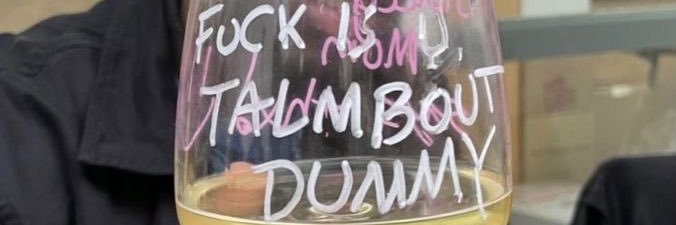 FUCK IS U
TALMBOUT
DUMMY